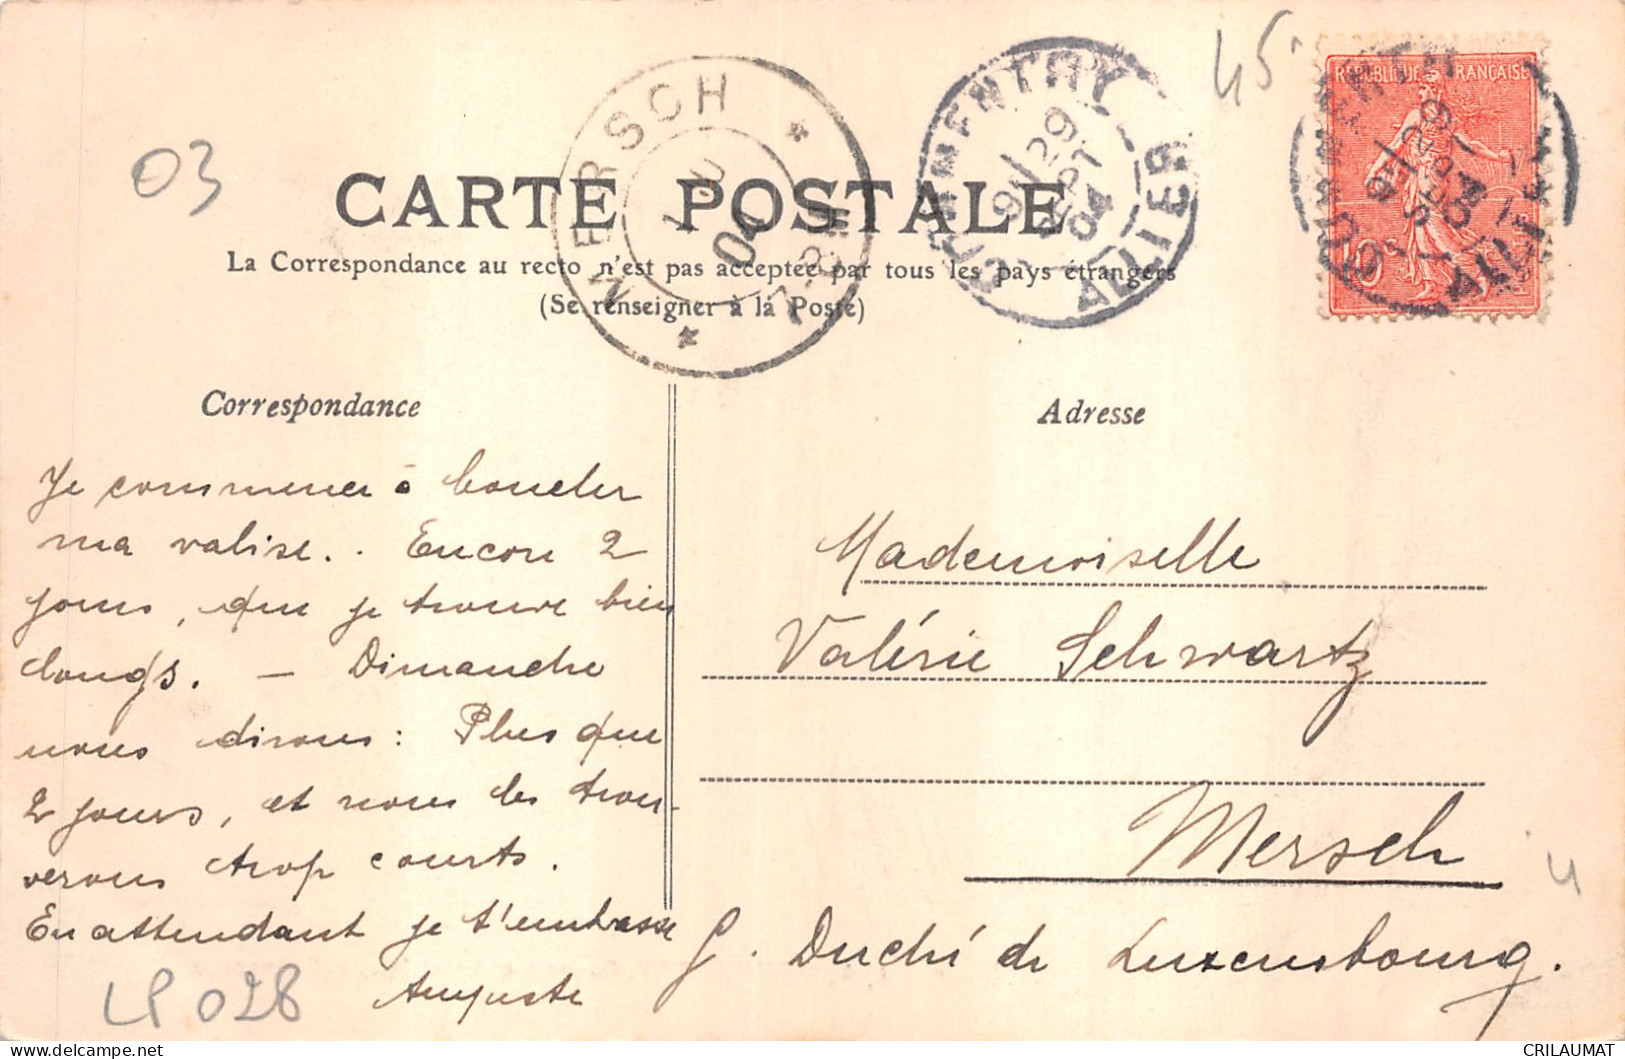 45
03
RÉPUBLIQUE FRANÇAISE
10
MERSCH
04
7-8
COMMENTRY
29
SEPT
04
ALLIER
CARTE POSTALE
La Correspondance au recto n'est pas acceptée par tous les pays étrangers
(Se renseigner à la Poste)
Correspondance
Je commence à boucler
ma valise.. Encore 2
jours, que je trouve bien
longs. — Dimanche
nous dirons: Plus que
2 jours, et nous les trou-
verons trop courts.
En attendant je t'embrasse
Auguste
LP 028
Adresse
Mademoiselle
Valérie Schwartz
Mersch
G. Duché de Luxembourg.
4
CRILAUMAT